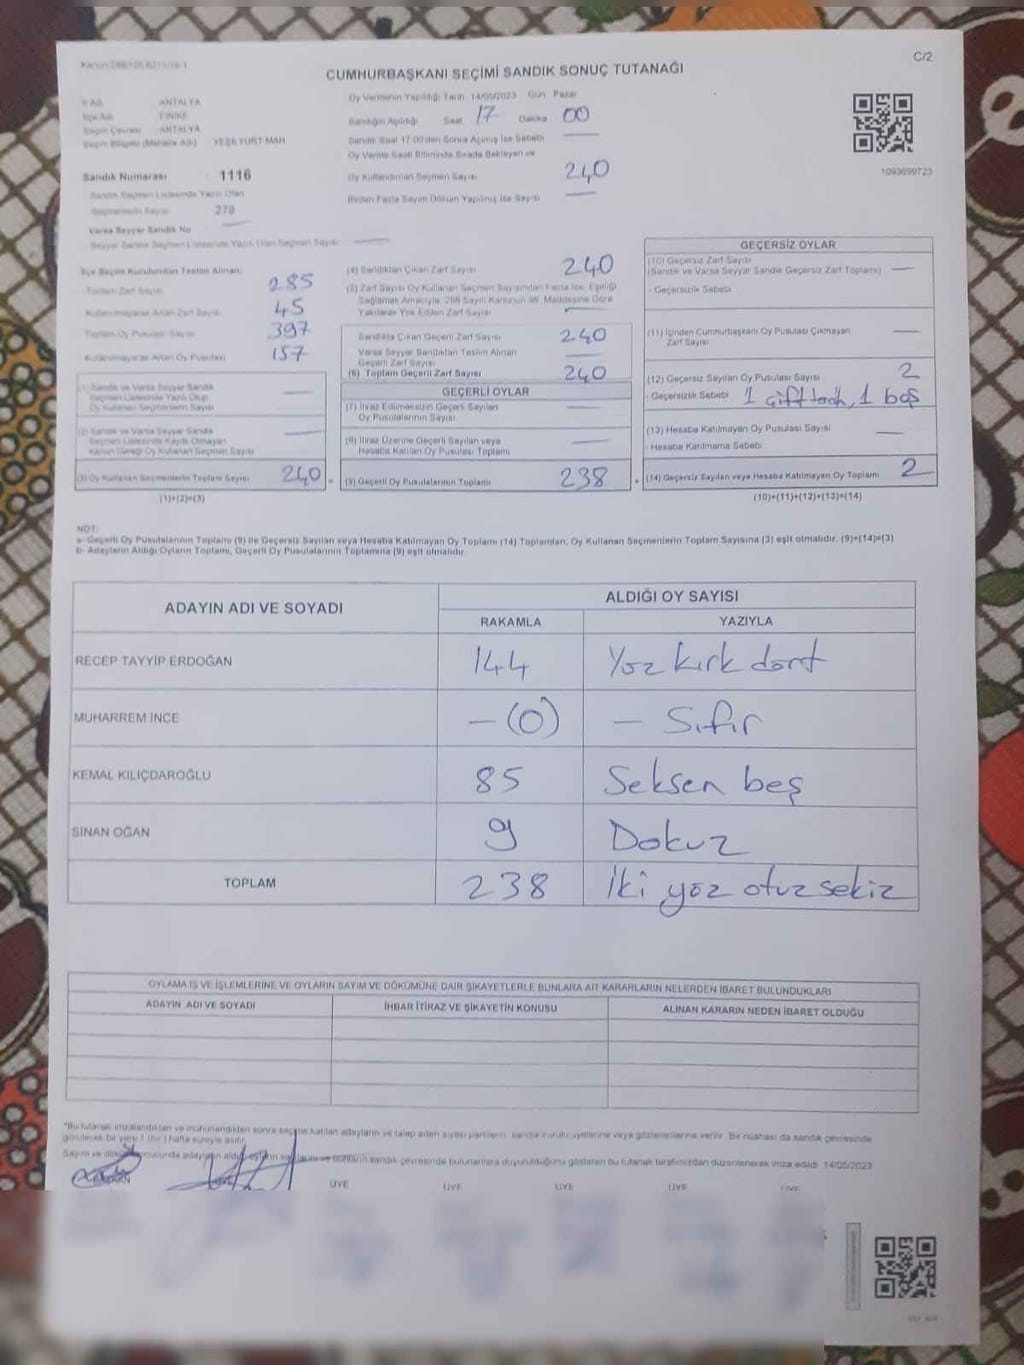 C/2
CUMHURBAŞKANI SEÇİMİ SANDIK SONUÇ TUTANAĞI
Oy Vermenin Yapıldığı Tarih 14/05/2023 Gün Pazar
İl Adı ANTALYA
İlçe Adı FİNİKE
Sandığın Açıldığı Saat 17 Dakika 00
Seçim Çevresi ANTALYA
Seçim Bölgesi (Mahalle Adı) YEŞİLYURT MAH
Sandık Saat 17.00'den Sonra Açılmış İse Sebebi —
Oy Verme Saati Bitiminde Sırada Bekleyen ve
Oy Kullandırılan Seçmen Sayısı 240
Birden Fazla Sayım Döküm Yapılmış İse Sayısı —
1093699723
Sandık Numarası 1116
Sandık Seçmen Listesinde Yazılı Olan
Seçmenlerin Sayısı 278
Varsa Seyyar Sandık No —
Seyyar Sandık Seçmen Listesinde Yazılı Olan Seçmen Sayısı —
İlçe Seçim Kurulundan Teslim Alınan:
Toplam Zarf Sayısı 285
Kullanılmayarak Artan Zarf Sayısı 45
Toplam Oy Pusulası Sayısı 397
Kullanılmayarak Artan Oy Pusulası 157
(1) Sandık ve Varsa Seyyar Sandık
Seçmen Listesinde Yazılı Olup
Oy Kullanan Seçmenlerin Sayısı —
(2) Sandık ve Varsa Seyyar Sandık
Seçmen Listesinde Kaydı Olmayan
Kanun Gereği Oy Kullanan Seçmen Sayısı —
(3) Oy Kullanan Seçmenlerin Toplam Sayısı 240
(1)+(2)=(3)
(4) Sandıktan Çıkan Zarf Sayısı 240
(5) Zarf Sayısı Oy Kullanan Seçmen Sayısından Fazla İse, Eşitliği
Sağlamak Amacıyla, 298 Sayılı Kanunun 98. Maddesine Göre
Yakılarak Yok Edilen Zarf Sayısı —
Sandıkta Çıkan Geçerli Zarf Sayısı 240
Varsa Seyyar Sandıktan Teslim Alınan
Geçerli Zarf Sayısı
(6) Toplam Geçerli Zarf Sayısı 240
GEÇERLİ OYLAR
(7) İtiraz Edilmeksizin Geçerli Sayılan
Oy Pusulalarının Sayısı —
(8) İtiraz Üzerine Geçerli Sayılan veya
Hesaba Katılan Oy Pusulası Toplamı —
(9) Geçerli Oy Pusulalarının Toplamı 238
GEÇERSİZ OYLAR
(10) Geçersiz Zarf Sayısı
(Sandık ve Varsa Seyyar Sandık Geçersiz Zarf Toplamı) —
- Geçersizlik Sebebi
(11) İçinden Cumhurbaşkanı Oy Pusulası Çıkmayan
Zarf Sayısı —
(12) Geçersiz Sayılan Oy Pusulası Sayısı 2
- Geçersizlik Sebebi 1 çift terch, 1 boş
(13) Hesaba Katılmayan Oy Pusulası Sayısı —
- Hesaba Katılmama Sebebi
(14) Geçersiz Sayılan veya Hesaba Katılmayan Oy Toplamı 2
(10)+(11)+(12)+(13)=(14)
NOT:
a- Geçerli Oy Pusulalarının Toplamı (9) ile Geçersiz Sayılan veya Hesaba Katılmayan Oy Toplamı (14) Toplamları, Oy Kullanan Seçmenlerin Toplam Sayısına (3) eşit olmalıdır. (9)+(14)=(3)
b- Adayların Aldığı Oyların Toplamı, Geçerli Oy Pusulalarının Toplamına (9) eşit olmalıdır.
ADAYIN ADI VE SOYADI ALDIĞI OY SAYISI
RAKAMLA YAZIYLA
RECEP TAYYİP ERDOĞAN 144 Yüz kırk dört
MUHARREM İNCE – (0) – Sıfır
KEMAL KILIÇDAROĞLU 85 Seksen beş
SİNAN OĞAN 9 Dokuz
TOPLAM 238 İki yüz otuz sekiz
OYLAMA İŞ VE İŞLEMLERİNE VE OYLARIN SAYIM VE DÖKÜMÜNE DAİR ŞİKAYETLERLE BUNLARA AİT KARARLARIN NELERDEN İBARET BULUNDUKLARI
ADAYIN ADI VE SOYADI İHBAR İTİRAZ VE ŞİKAYETİN KONUSU ALINAN KARARIN NEDEN İBARET OLDUĞU
*Bu tutanak imzalandıktan ve mühürlendikten sonra seçime katılan adayların ve talep eden siyasi partilerin, sandık kurulu üyelerine veya gözlemcilerine verilir. Bir nüshası da sandık çevresinde
görülecek bir yere 1 (bir) hafta süreyle asılır.
14/05/2023
ÜYE ÜYE ÜYE ÜYE ÜYE